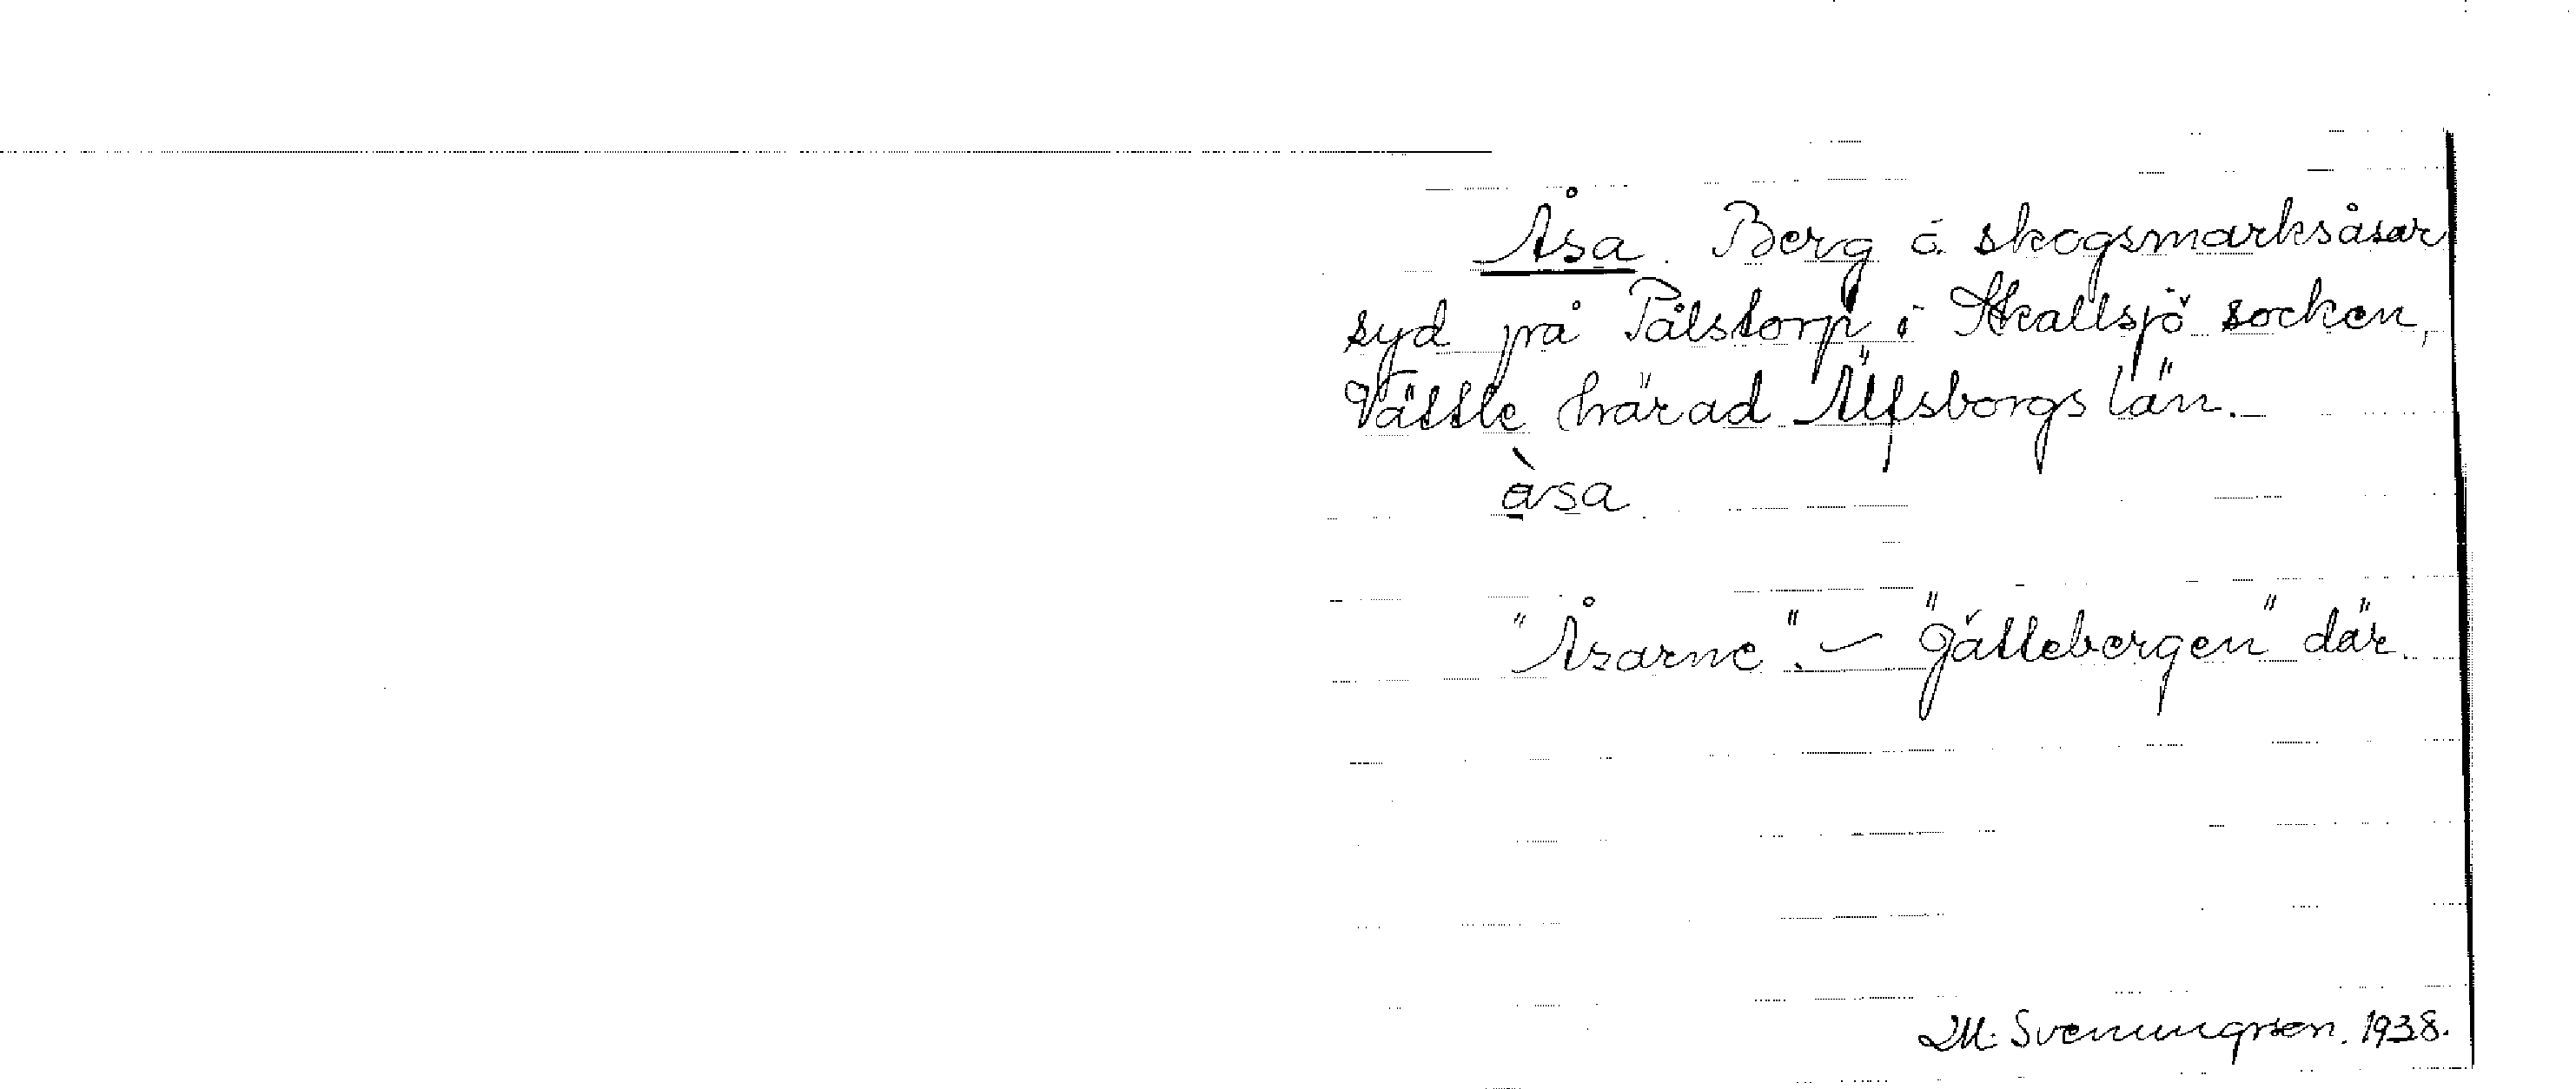 Åsa. Berg å skogsmarksåsar
syd på Pålstorp i Skallsjö socken,
Vättle härad Älfsborgs län.
åsa
"Åsarne". — "Jättebergen" där.
M. Svenungsson. 1938.